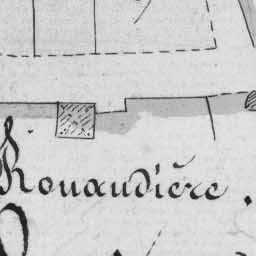 Rouaudière.